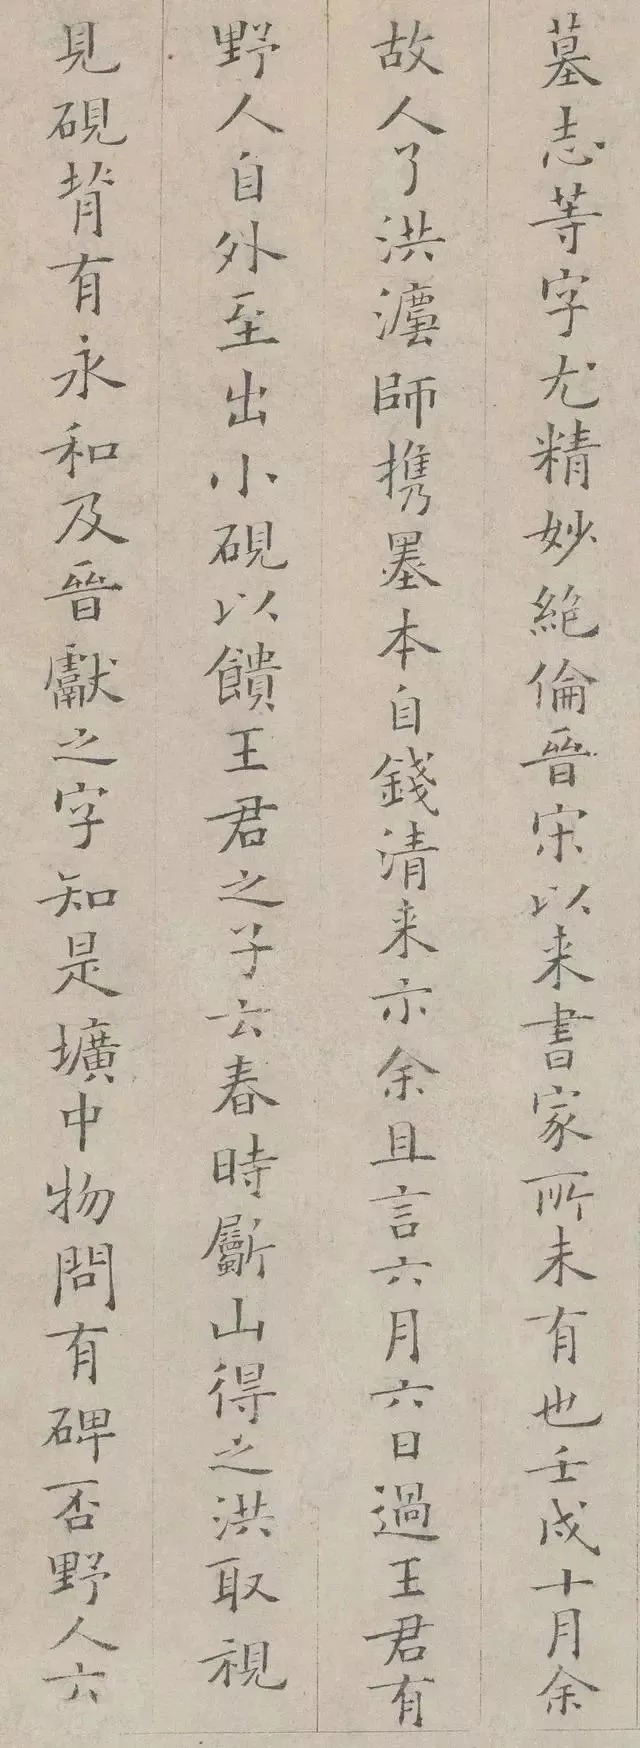 墓志等字尤精妙絶倫晉宋以来書家所未有也壬戌十月余
故人了洪瀍師携墨本自錢清来示余且言六月六日過王君有
野人自外至出小硯以饋王君之子云春時斸山得之洪取視
見硯背有永和及晉獻之字知是壙中物問有碑否野人云